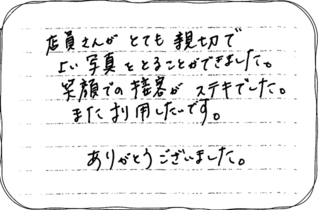 店員さんが とても 親切で
よい 写真をとることができました。
笑顔での接客が ステキでした。
また利用したいです。
ありがとうございました。